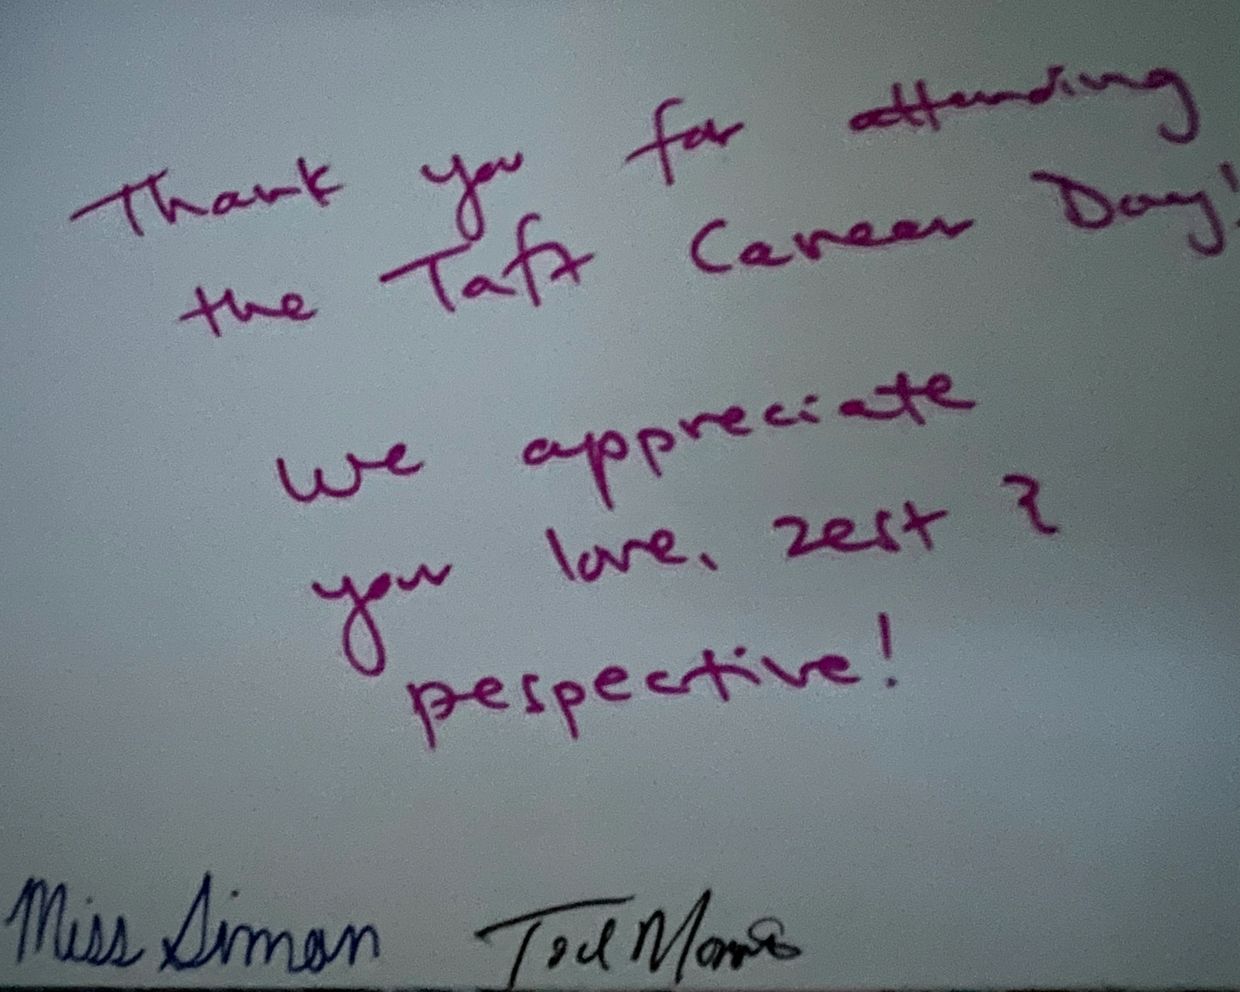 Thank you for attending
the Taft Career Day!
We appreciate
your love, zest &
pespective!
Miss Siman Tod Morris